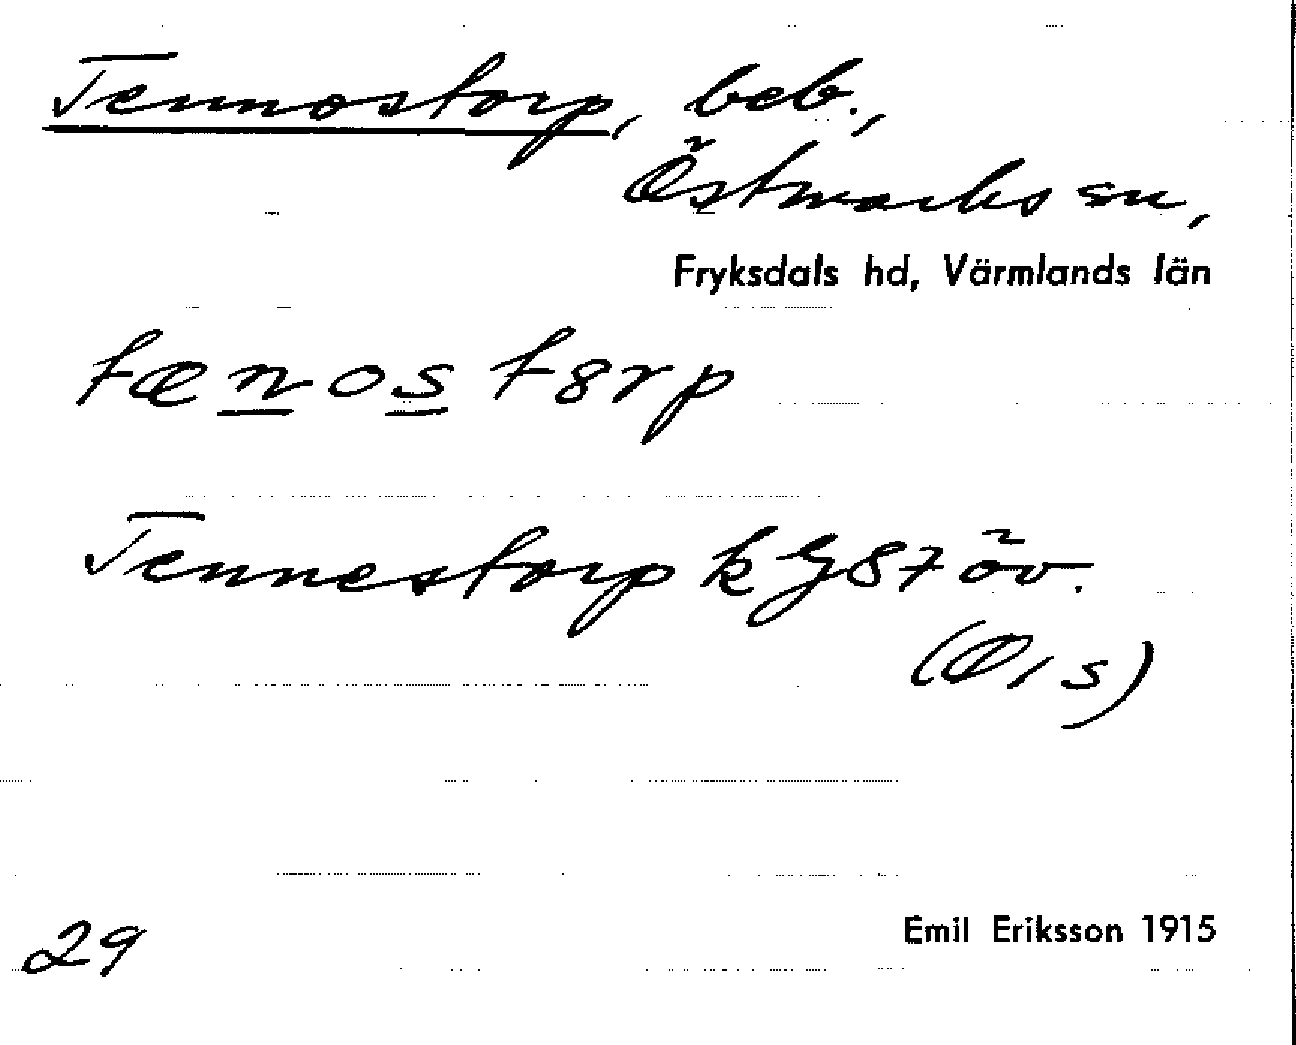 Tennostorp, beb.,
Östmarks sn,
Fryksdals hd, Värmlands län
tænostȣrp
Tennestorp k G87 öv.
29
Emil Eriksson 1915